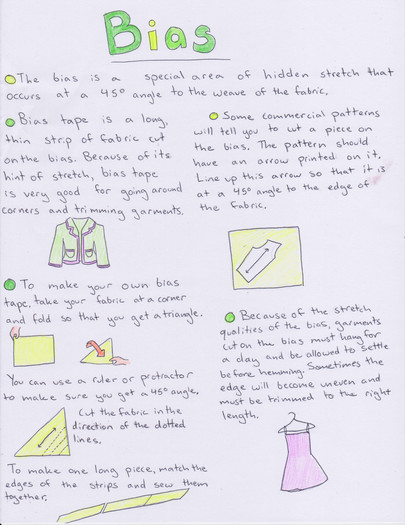 Bias
The bias is a special area of hidden stretch that
occurs at a 45° angle to the weave of the fabric.
Bias tape is a long,
thin strip of fabric cut
on the bias. Because of its
hint of stretch, bias tape
is very good for going around
corners and trimming garments.
Some commercial patterns
will tell you to cut a piece on
the bias. The pattern should
have an arrow printed on it.
Line up this arrow so that it is
at a 45° angle to the edge of
the fabric.
To make your own bias
tape, take your fabric at a corner
and fold so that you get a triangle.
You can use a ruler or protractor
to make sure you get a 45° angle.
Cut the fabric in the
direction of the dotted
lines.
To make one long piece, match the
edges of the strips and sew them
together.
Because of the stretch
qualities of the bias, garments
cut on the bias must hang for
a day and be allowed to settle
before hemming. Sometimes the
edge will become uneven and
must be trimmed to the right
length.